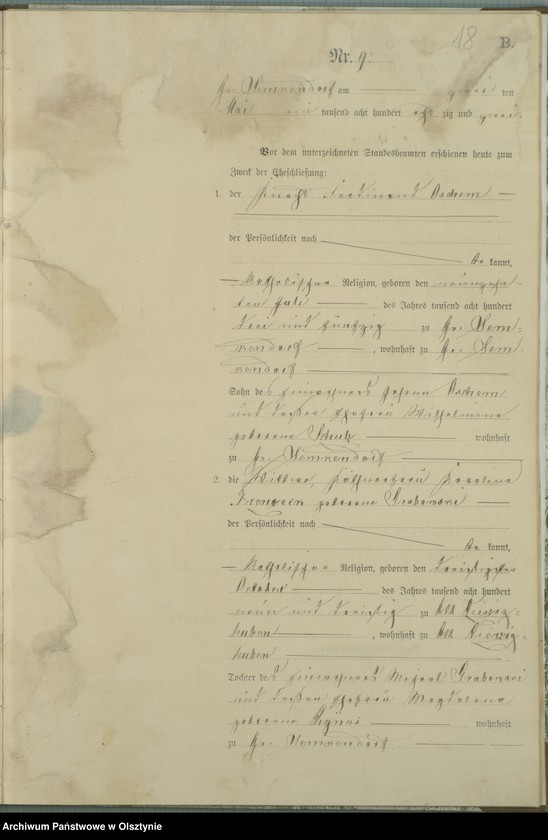 18
B.
Nr. 9.
Gr. Lemkendorf am zwei ten
Mai ein tausend acht hundert acht zig und zwei.
Vor dem unterzeichneten Standesbeamten erschienen heute zum
Zweck der Eheschließung:
1. der Knecht Ferdinand
der Persönlichkeit nach
be kannt,
katholischer Religion, geboren den neunzehn-
ten Juli des Jahres tausend acht hundert
drei und fünfzig zu Gr. Lem-
kendorf, wohnhaft zu Gr. Lem-
kendorf
Sohn des Einwohners Johann
und dessen Ehefrau Wilhelmine
geborene Schulz wohnhaft
zu Gr. Lemkendorf
2. die Wittwe,
geborene Grabowski
der Persönlichkeit nach
be kannt,
katholischer Religion, geboren den dreißigsten
October des Jahres tausend acht hundert
neun und dreißig zu
huben, wohnhaft zu
huben
Tochter des Einwohners Michael Grabowski
und dessen Ehefrau Magdalena
geborene wohnhaft
zu Gr. Lemkendorf
Archiwum Państwowe w Olsztynie